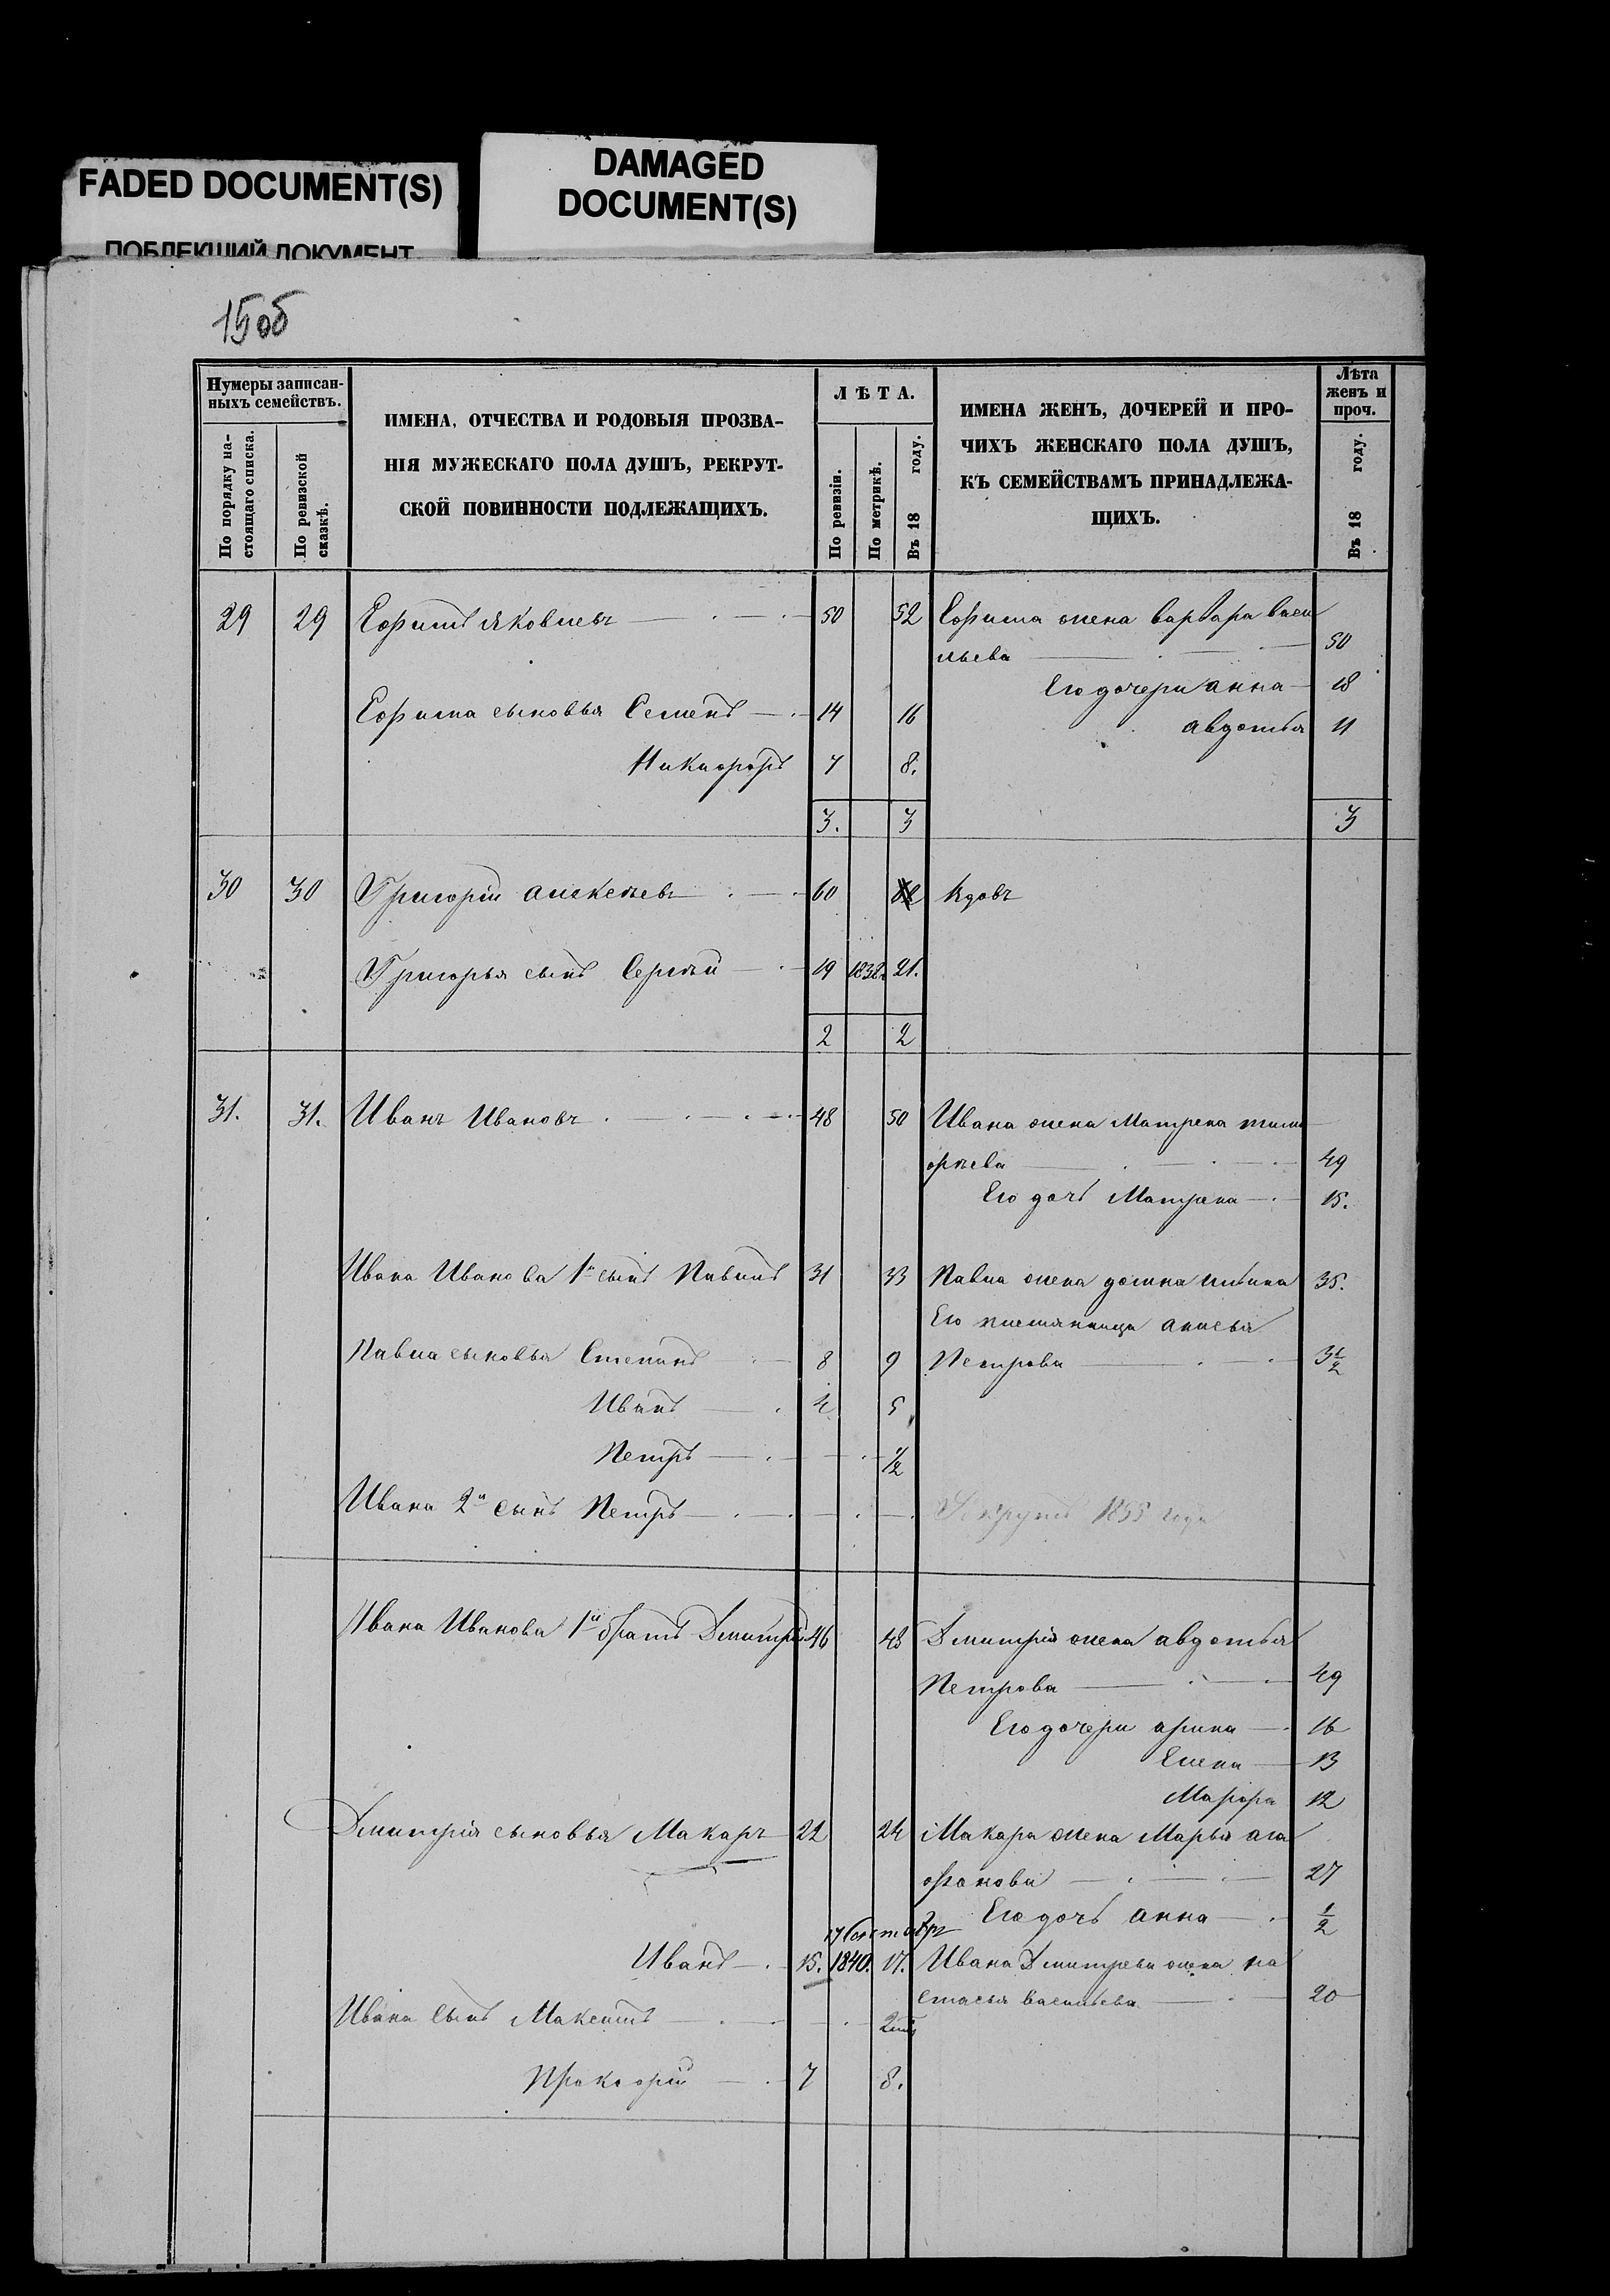 FADED DOCUMENT(S)
ПОБЛЕКШИЙ ДОКУМЕНТ
DAMAGED
DOCUMENT(S)
15об
Нумеры записан-
ныхъ семействъ.
По порядку на-
стоящаго списка.
По ревизской
сказкѣ.
ИМЕНА, ОТЧЕСТВА И РОДОВЫЯ ПРОЗВА-
НІЯ МУЖЕСКАГО ПОЛА ДУШЪ, РЕКРУТ-
СКОЙ ПОВИННОСТИ ПОДЛЕЖАЩИХЪ.
ЛѢТА.
По ревизіи.
По метрикѣ.
Въ 18 году.
ИМЕНА ЖЕНЪ, ДОЧЕРЕЙ И ПРО-
ЧИХЪ ЖЕНСКАГО ПОЛА ДУШЪ,
КЪ СЕМЕЙСТВАМЪ ПРИНАДЛЕЖА-
ЩИХЪ.
Лѣта
женъ и
проч.
Въ 18 году.
29 29 Ефимъ Яковлевъ 50 52 Ефима жена варвара васи
льева 50
Его дочери анна 18
Ефима сыновья Семенъ 14 16 авдотья 11
Никифоръ 7 8.
3. 3 3
30 30 Григорій алексѣевъ 60 Вдовъ
Григорья сынъ Сергѣй 19 1838. 21.
2 2
31. 31. Иванъ Ивановъ 48 50 Ивана жена Матрена тим
офѣева 49
Его дочь Матрена 15.
Ивана Иванова 1й сынъ Павилъ 31 33 Павла жена домна 35.
Его племянница анисья
Павла сыновья Степанъ 8 9 Петрова 3 1/2
Иванъ 4 5
Петръ 1/2
Ивана 2й сынъ Петръ Рекрутъ 1855 года
Ивана Иванова 1й братъ Дмитрій 46 48 Дмитрія жена авдотья
Петрова 49
Его дочери арина 16
Елена 13
Марфа 12
Дмитрія сыновья Макаръ 22 24 Макара жена Марья ага
фонова 27
Его дочь анна 1/2
17 Сентября
Иванъ 15. 1840. 17. Ивана Дмитрева жена на
стасья васильева 20
Ивана сынъ Максимъ
Прокофій 7 8.